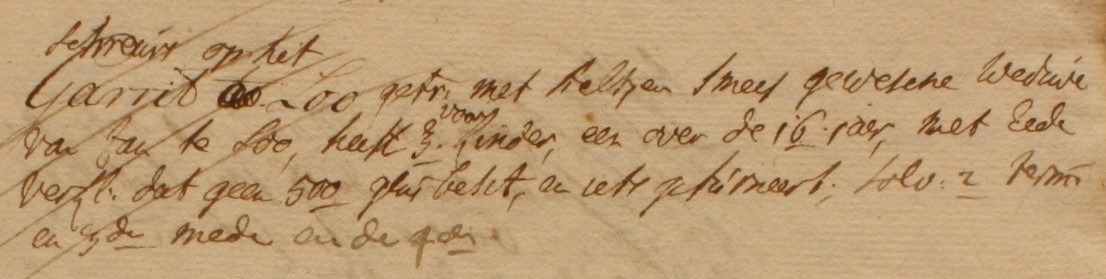 Schreurs op het
Garrit Loo getr. met heltjen Smees gewesene Weduwe
van Jan te Loo, heeft 3. voor kinder, een over de 16. jaer, met Eede
verkl. dat geen 500 gls besit, en iets gefurneert. solv. 2 term
en 3de mede en de 4de